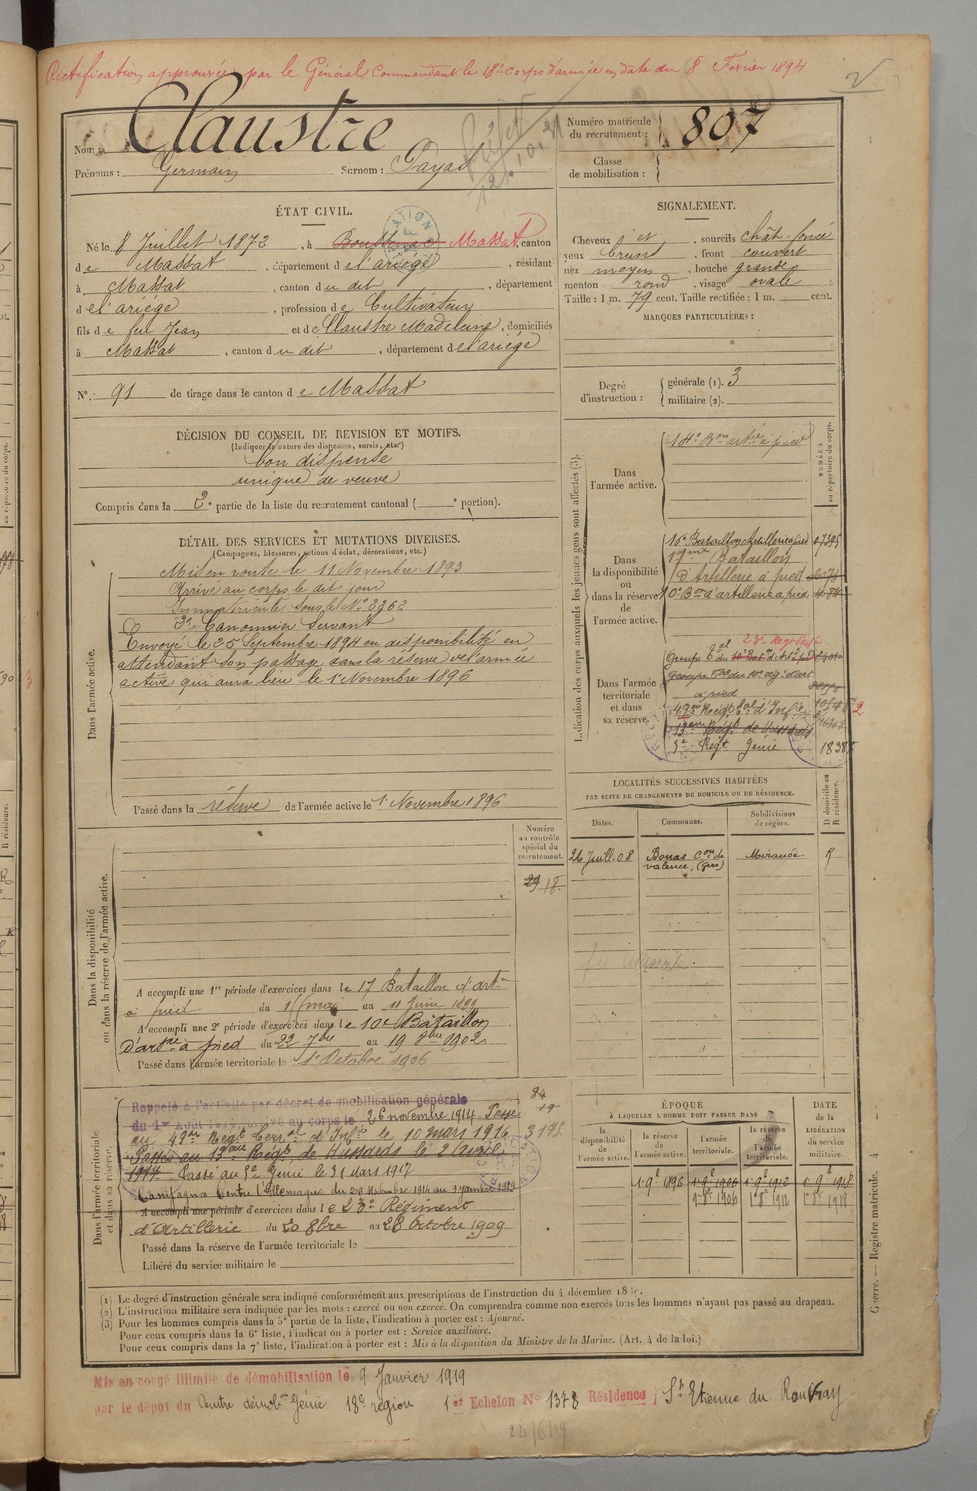 Rectification approuvée par le Général Commandant le 18e corps d'armée en date du 8 Février 1894
2
Nom : Claustre
Prénoms : Germain Surnom : Payat
Numéro matricule du recrutement : 807
Classe de mobilisation :
ÉTAT CIVIL.
Né le 8 Juillet 1872, à Boussenac Massat, canton
de Massat, département de l'ariége, résidant
à Massat, canton du dit, département
de l'ariége, profession de Cultivateur
fils de feu Jean et de Claustre Madeleine, domiciliés
à Massat, canton du dit, département de l'ariége
N° 91 de tirage dans le canton de Massat
SIGNALEMENT.
Cheveux et sourcils chât. foncé
yeux bruns, front couvert
nez moyen, bouche grande
menton rond, visage ovale
Taille : 1 m. 79 cent. Taille rectifiée : 1 m. cent.
MARQUES PARTICULIÈRES :
Degré d'instruction : générale (1). 3
militaire (2).
DÉCISION DU CONSEIL DE REVISION ET MOTIFS.
(Indiquer la nature des dispenses, sursis, etc.)
bon dispensé
unique de veuve
Compris dans la 2e partie de la liste du recrutement cantonal ( e portion).
DÉTAIL DES SERVICES ET MUTATIONS DIVERSES.
(Campagnes, blessures, actions d'éclat, décorations, etc.)
Dans l'armée active.
Mis en route le 11 Novembre 1893
Arrivé au corps le dit jour
Immatriculé sous le N° 3362
2e Canonnier Servant
Envoyé le 25 Septembre 1894 en disponibilité en
attendant son passage dans la réserve de l'armée
active qui aura lieu le 1er Novembre 1896
Passé dans la réserve de l'armée active le 1er Novembre 1896
Indication des corps auxquels les jeunes gens sont affectés (3).
NUMÉRO au répertoire du corps.
Dans l'armée active.
Dans la disponibilité ou dans la réserve de l'armée active.
10e Bataillon Artillerie à pied 07395
17me Bataillon
d'Artillerie à pied
10e Bon d'artillerie à pied
Dans l'armée territoriale et dans sa réserve.
23e Regt d'art
à pied
49me Regt tal d'Infie
13eme Régt de Hussards
2e Regt Génie 1838
LOCALITÉS SUCCESSIVES HABITÉES
PAR SUITE DE CHANGEMENTS DE DOMICILE OU DE RÉSIDENCE.
Dates. Communes. Subdivisions de région. D domicile ou R résidence.
26 Juill. 08 Bonas Con de Valence, (Gers) Mirande R
Numéro au contrôle spécial du recrutement.
Dans la disponibilité ou dans la réserve de l'armée active.
A accompli une 1re période d'exercices dans le 17 Bataillon d'artie
à pied du 15 mai au 11 Juin 1899
A accompli une 2e période d'exercices dans le 10e Bataillon
d'artie à pied du 22 7bre au 19 8bre 1902
Passé dans l'armée territoriale le 1er Octobre 1906
Dans l'armée territoriale et dans sa réserve.
Rappelé à l'activité par décret de mobilisation générale
du 1er Août 1914. Arrivé au corps le 26 novembre 1914. Passé
au 49me Regt Terral d'Infie le 10 mars 1916 3175
Passé au 13eme Régt de Hussards le 2 Avril
1917. Passé au 2e Génie le 31 mars 1917
Campagnes Contre l'Allemagne du 26 Novembre 1914 au 9 janvier 1919
A accompli une période d'exercices dans le 23e Régiment
d'Artillerie du 20 8bre au 28 Octobre 1909
Passé dans la réserve de l'armée territoriale le
Libéré du service militaire le
ÉPOQUE
À LAQUELLE L'HOMME DOIT PASSER DANS
la disponibilité de l'armée active. la réserve de l'armée active. l'armée territoriale. la réserve de l'armée territoriale.
DATE de la LIBÉRATION du service militaire.
1 9e 1896 1 9e 1906 1 9e 1912 1 9e 1918
(1) Le degré d'instruction générale sera indiqué conformément aux prescriptions de l'instruction du 4 décembre 1889.
(2) L'instruction militaire sera indiquée par les mots : exercé ou non exercé. On comprendra comme non exercés tous les hommes n'ayant pas passé au drapeau.
(3) Pour les hommes compris dans la 5e partie de la liste, l'indication à porter est : Ajourné.
Pour ceux compris dans la 6e liste, l'indication à porter est : Service auxiliaire.
Pour ceux compris dans la 7e liste, l'indication à porter est : Mis à la disposition du Ministre de la Marine. (Art. 4 de la loi.)
Guerre. — Registre matricule. 4
Mis en congé illimité de démobilisation le 9 Janvier 1919
par le dépot du Centre démobon Génie 18e région 1er Echelon N° 1378 Résidence St Etienne du Rouvray
24/6/19